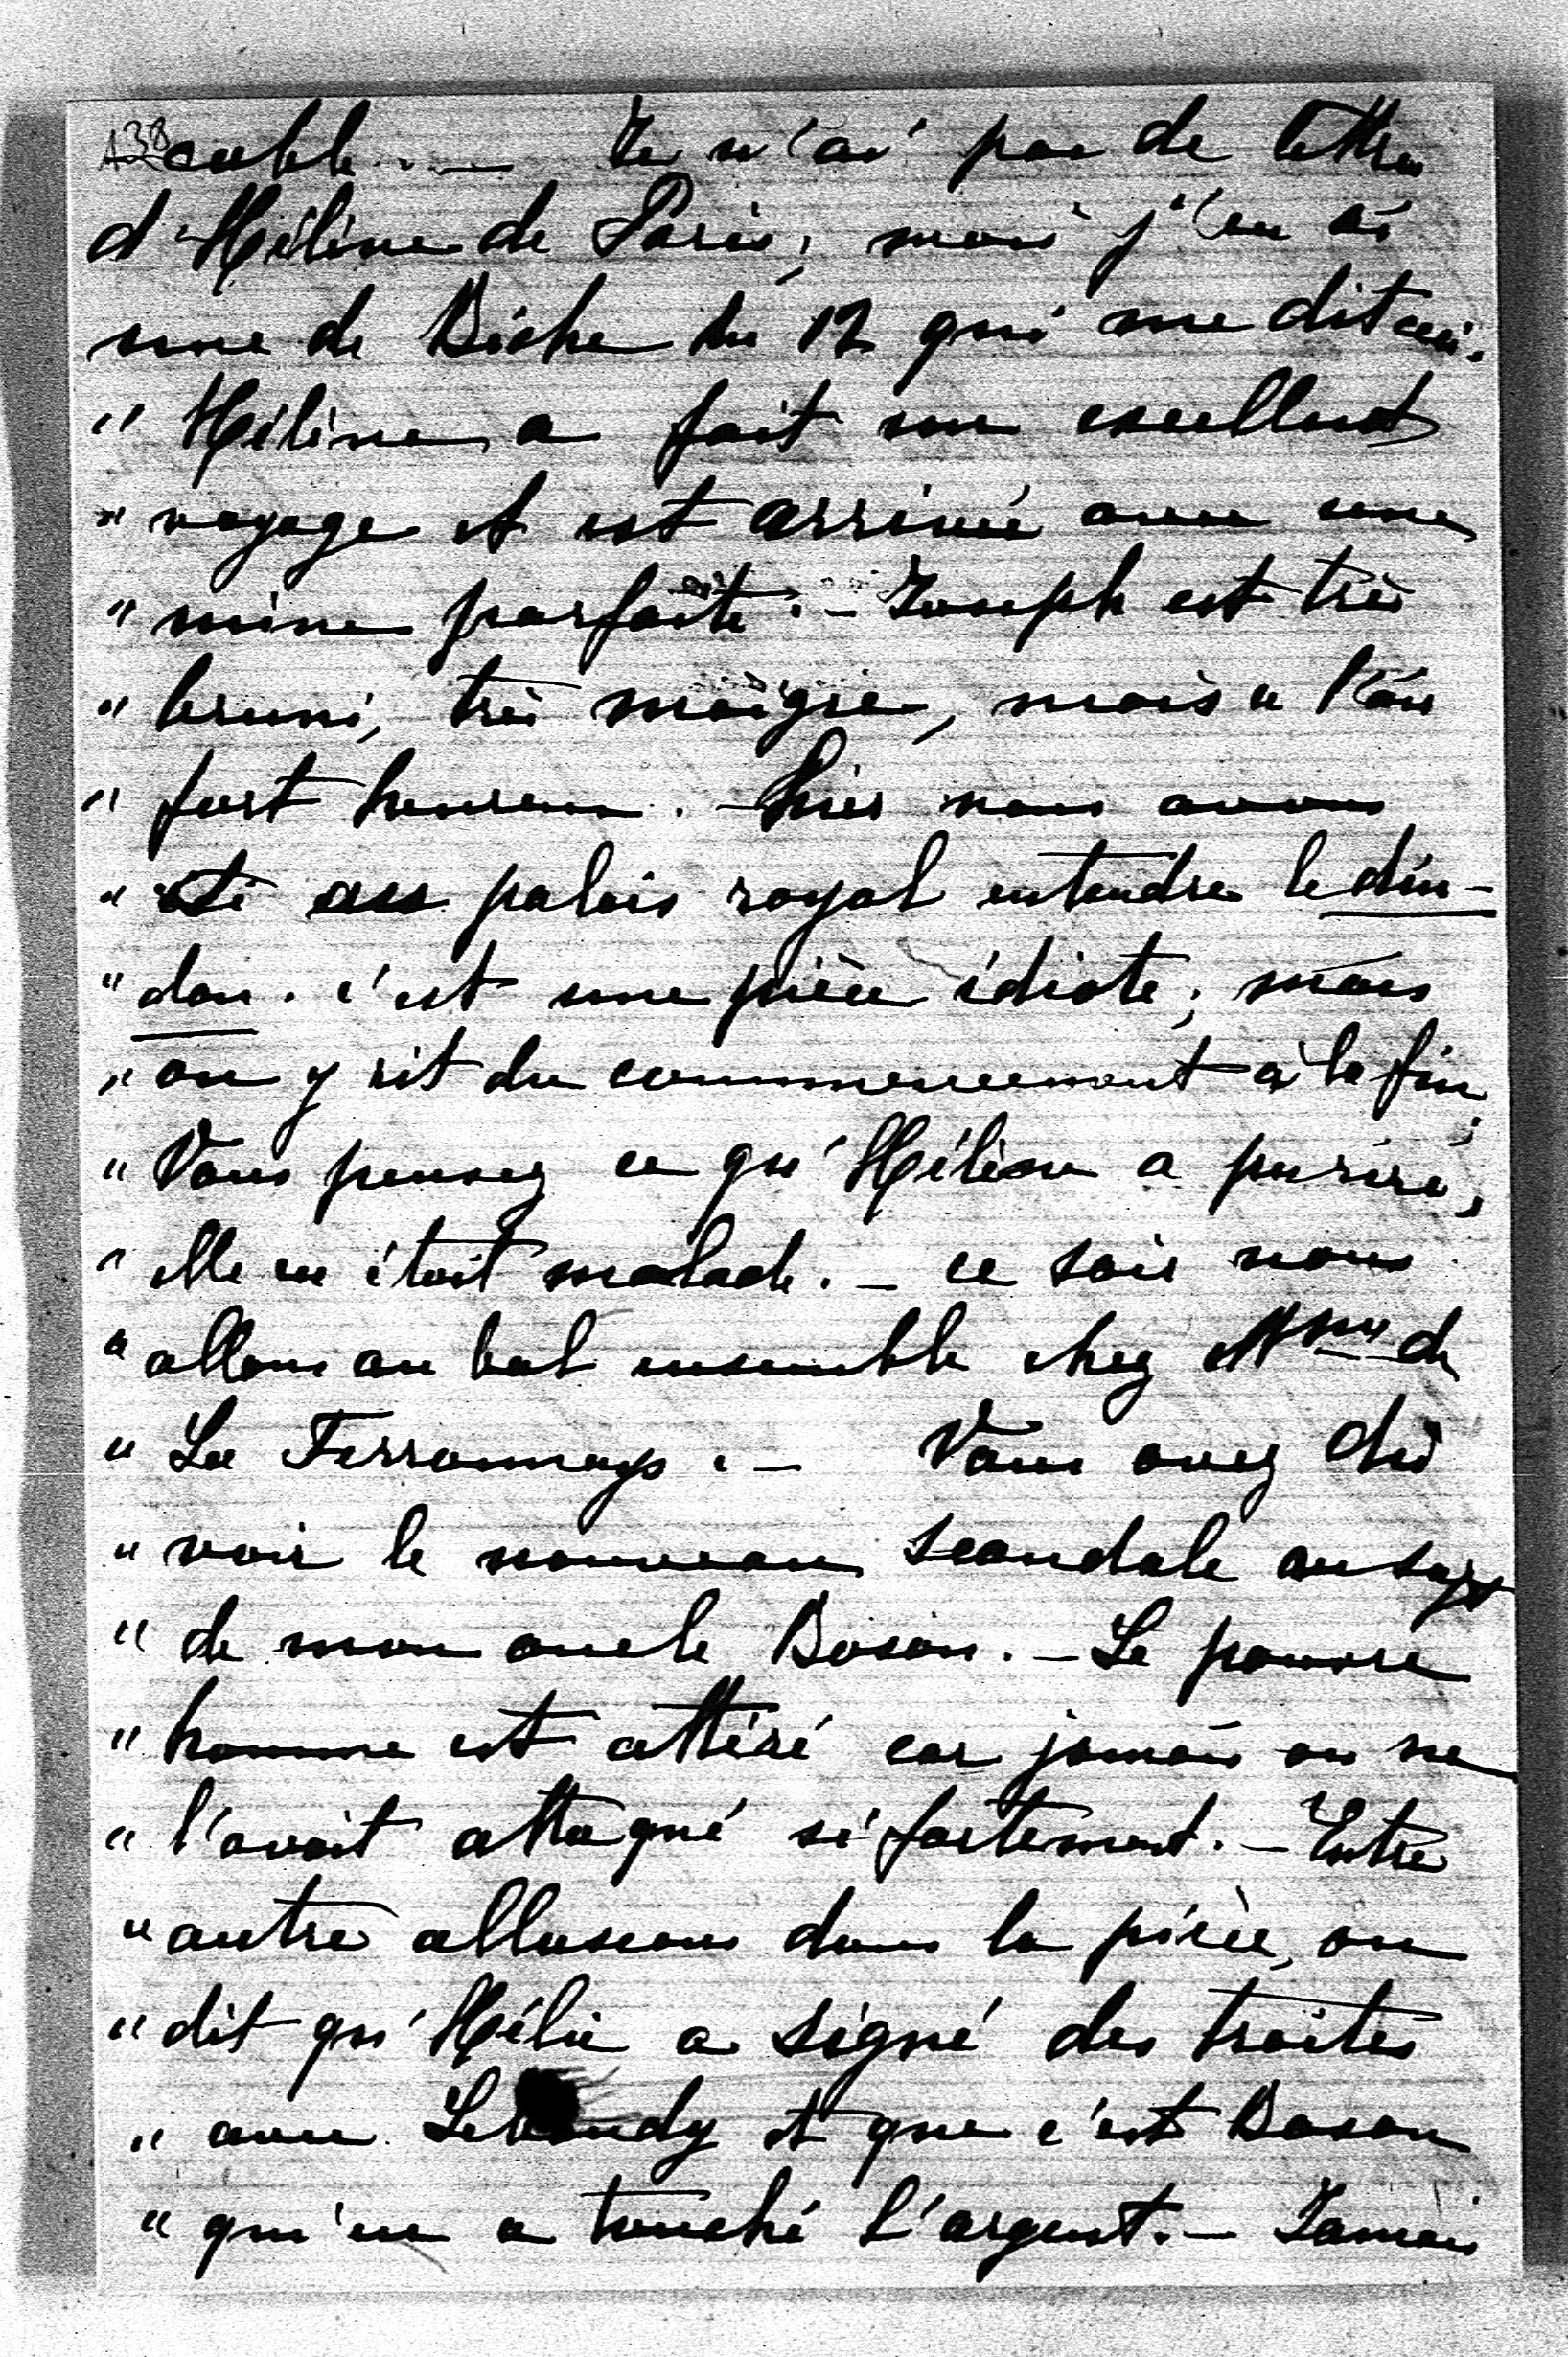 138
cable. — Je n'ai pas de lettre
d'Hélène de Paris; mais j'en ai
une de Biche du 12 qui me dit ceci.
" Hélène a fait un excellent
" voyage et est arrivée avec une
" mine parfaite. — Joseph est très
" bruni, très maigre, mais a l'air
" fort heureux. — hier nous avons
" été au palais royal entendre le din-
" don. c'est une pièce idiote; mais
" on y rit du commencement à la fin;
" Vous pensez ce qu'Hélène a pu rire,
" elle en était malade. — ce soir nous
" allons au bal ensemble chez Mme de
" La Ferronnays. — Vous avez dû
" voir le nouveau scandale au sujet
" de mon oncle Boson. — Le pauvre
" homme est attéré car jamais on ne
" l'avait attaqué si fortement. — Entre
" autre allusions dans la pièce, on
" dit qu'Hélie a signé des traites
" avec Lebaudy et que c'est Boson
" qui en a touché l'argent. — Jamais